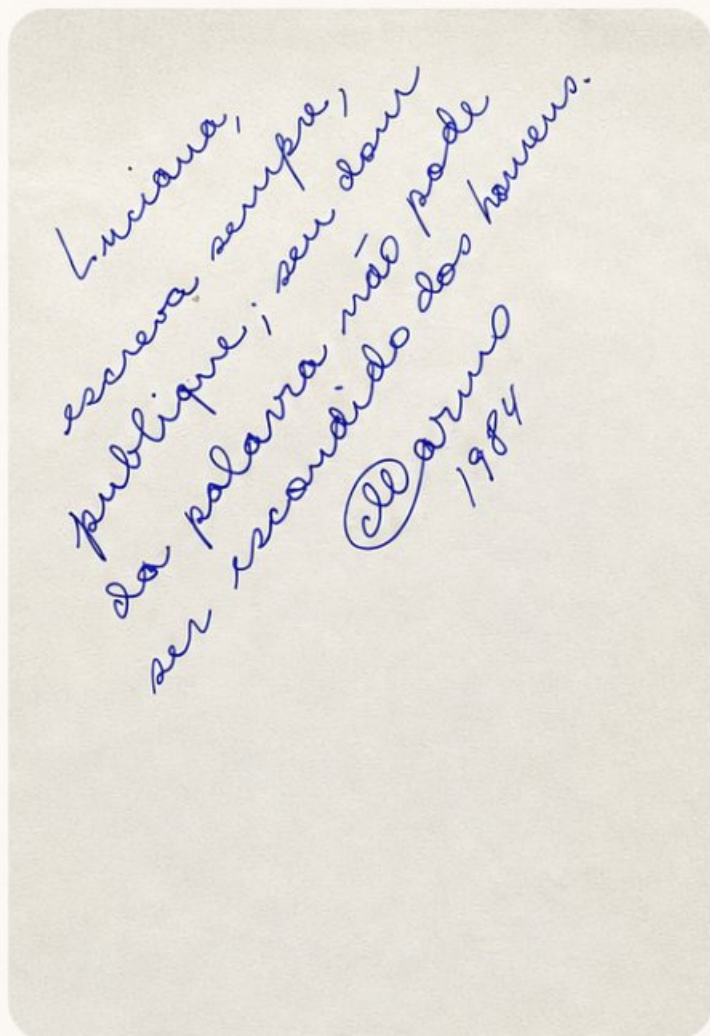 Luciana,
escreva sempre,
publique; seu dom
da palavra não pode
ser escondido dos homens.
Marno
1984